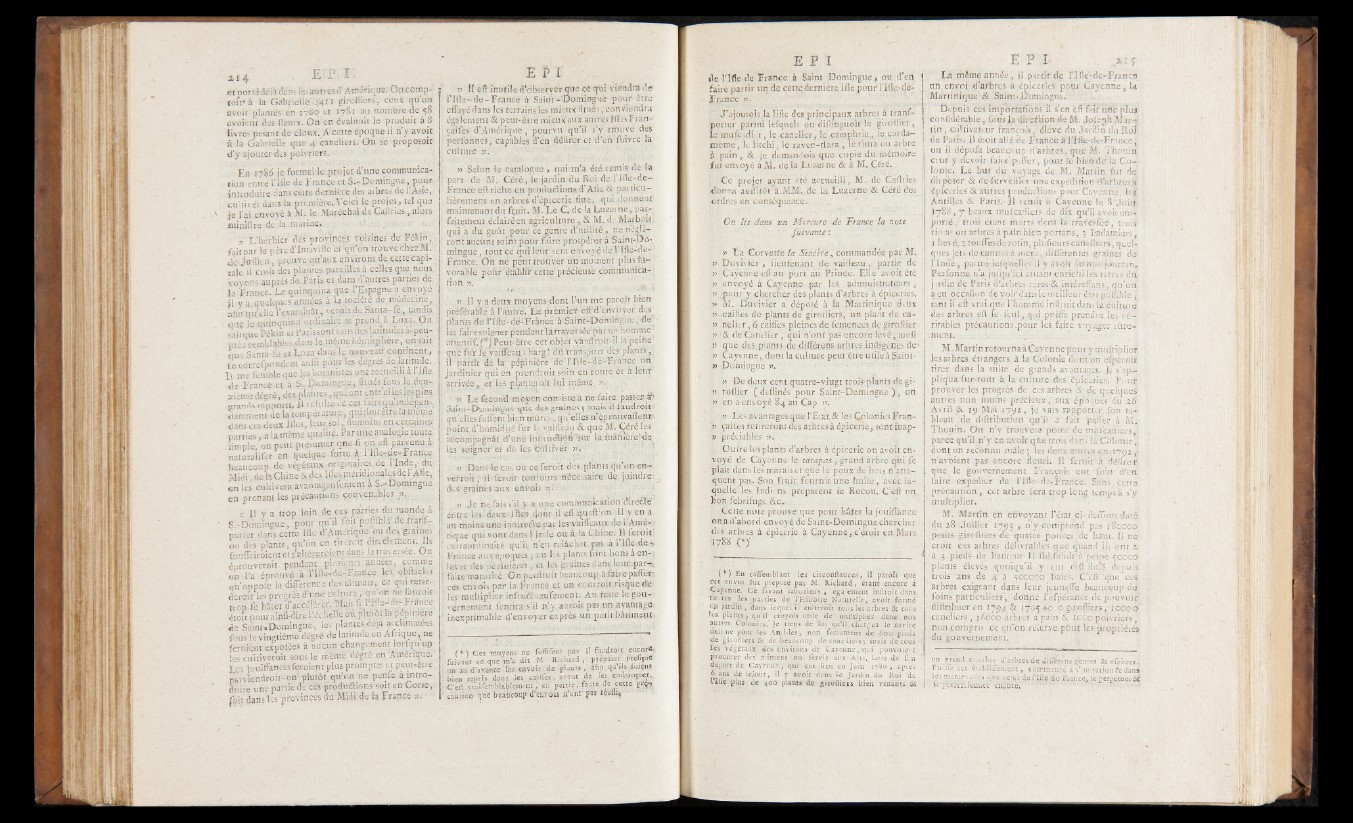 214
EPI
et porté déjà dans les autres d'Amérique. On comp-
toit à la Gabrielle 3411 girofliers, ceux qu'on
avoit plantés en 1780 et 1781 au nombre de 58
avoient des fleurs. On en évaluoit le produit à 8
livres pesant de cloux. A cette époque il n'y avoit
à la Gabrielle que 4 caneliers. On se proposoit
d'y ajouter des poivriers.
En 1786 je formai le projet d'une communica-
tion entre l'isle de France et S.-Domingue, pour
introduire dans cette dernière des arbres de l'Asie,
cultivés dans la première. Voici le projet, tel que
je l'ai envoyé à M. le Maréchal de Castries, alors
ministre de la marine.
» L'herbier des provinces voisines de Pékin,
fait par le père d'Incaville et qu'on trouve chez M.
de Jussieu, prouve qu'aux environs de cette capi-
tale il croît des plantes pareilles à celles que nous
voyons auprès de Paris et dans d'autres parties de
la France. Le quinquina que l'Espagne a envoyé
il y a quelques années à la société de médecine,
afin qu'elle l'examinât, venoit de Santa-fé, tandis
que le quinquina ordinaire se prend à Loxa. On
sait que Pékin et Paris sont sous des latitudes à-peu-
près semblables dans le même hémisphère, on sait
que Santa-fé et Loxa dans le nouveau continent,
se correspondent aussi pour les degrés de latitude.
Il me semble que les botanistes ont recueilli à l'isle
de France et à S. Domingue, situés sous le dou-
zième dégré, des plantes, qui ont entr'elles les plus
grands rapports. Il résulte de ces faits qu'indépen-
damment de la température, qui doit être la même
dans ces deux Isles, leur sol, au moins en certaines
parties, a la même qualité. Par une analogie toute
simple, on peut présumer que si on est parvenu à
naturaliser en quelque sorte à l'Isle-de-France
beaucoup de végétaux originaires de l'Inde, du
Midi, de la Chine & des Isles méridionales de l'Asie,
on les cultivera avantageusement à S.-Domingue
en prenant les précautions convenables ».
» Il y a trop loin de ces parties du monde à
S.-Domingue, pour qu'il soit possible de trans-
porter dans cette Isle d'Amérique ou des graines
ou des plants, qu'on en tireroit directement. Ils
souffriroient et s'altéreroient dans la traversée. On
éprouveroit pendant plusieurs années, comme
on l'a éprouvé à l'Isle-de-France les obstacles
qu'oppose la différence des climats, ce qui retar-
deroit les progrès d'une culture, qu'on ne sauroit
trop se hâter d'accélérer. Mais si l'Isle-de-France
étoit pour ainsi-dire l'échelle ou plutôt la pépinière
de Saint-Domingue, les plantes déjà acclimatées
sous le vingtième dégré de latitude en Afrique, ne
seroient exposées à aucun changement lorsqu'on
les cultiveroit sous le même dégré en Amérique.
Les jouissances seroient plus promptes et peut-être
parviendroit-on plutôt qu'on ne pense à intro-
duire une partie de ces productions soit en Corse,
soit dans les provinces du Midi de la France ».
EPI
» Il est inutile d'observer que ce qui viendra de
l'Isle-de-France à Saint-Domingue pour être
essayé dans les terrains les mieux situés, conviendra
également & peut-être mieux aux autres Isles Fran-
çaises d'Amérique, pourvu qu'il s'y trouve des
personnes, capables d'en désirer et d'en suivre la
culture ».
» Selon le catalogue, qui m'a été remis de la
part de M. Céré, le jardin du Roi de l'isle-de-
France est riche en productions d'Asie & particu-
lièrement en arbres d'épicerie fine, qui donnent
maintenant du fruit. M. Le C. de la Luzerne, par-
faitement éclairé en agriculture, & M. de Marbois
qui a du goût pour ce genre d'utilité, ne négli-
ront aucuns soins pour faire prospérer à Saint-Do-
mingue, tout ce qui leur sera envoyé de l'Isle-de-
France. On ne peut trouver un moment plus fa-
vorable pour établir cette précieuse communica-
tion ».
» Il y a deux moyens dont l'un me paroît bien
préférable à l'autre. Le premier est d'envoyer des
plants de l'Isle-de-France à Saint-Domingue, de
les faire soigner pendant la traversée par un homme
attentif. (*) Peut-être cet objet vaudroit-il la peine
que sur le vaisseau chargé du transport des plants,
il partît de la pépinière de l'Isle-de-France un
jardinier qui en prendroit soin en route et à leur
arrivée, et les planteroit lui même ».
» Le second moyen consiste à ne faire passer à
Saint-Domingue que des graines; mais il faudroit
qu'elles fussent bien mûres, qu'elles n'éprouvassent
point d'humidité sur le vaisseau & que M. Céré les
accompagnât d'une instruction sur la manière de
les soigner et de les cultiver ».
» Dans le cas où ce seroit des plants qu'on en-
verroit, il seroit toujours nécessaire de joindre
des graines aux envois ».
» Je ne sais s'il y a une communication directe
entre les deux isles dont il est question. Il y en a
au moins une indirecte par les vaisseaux de l'Amé-
rique qui vont dans l'Inde ou à la Chine. Il seroit
extraordinaire qu'il n'en relâchât pas à l'Isle-de-
France aux époques, où les plants sont bons à en-
lever des pépinières, et les graines dans leur par-
faite maturité. On perdroit beaucoup à faire passer
ces envois par la France et on courroit risque de
les multiplier infructueusement. Au reste le gou-
vernement sentira s'il n'y auroit pas un avantage
inexprimable d'envoyer exprès un petit bâtiment
(*) Cet moyens ne suffisent pas il faudroit encore,
suivant ce que m'a dit M. Richard, préparer presque
un an d'avance les envois de plants, afin qu'ils soient
bien repris dans les caisses, avant de les embarquer.
C'est vraisemblablement, en partie, faute de cette pré-
caution que beaucoup d'envois n'ont pas réussi.
EPI
de l'Isle de France à Saint Domingue, ou d'en
faire partir un de cette dernière Isle pour l'Isle-de-
France ».
J'ajoutois la liste des principaux arbres à trans-
porter parmi lesquels on distinguoit le giroflier,
le muscadier, le canelier, le camphrier, le carda-
mome, le litchi, le raven-tsara, le rima ou arbre
à pain, & je demandois que copie du mémoire
fût envoyé à M. de la Luzerne & à M. Céré.
Ce projet ayant été accueilli, M. de Castries
donna aussitôt à MM. de la Luzerne & Céré des
ordres en conséquence.
On lit dans un Mercure de France la note
suivante :
» La Corvette la Sincère, commandée par M.
» Duvivier, lieutenant de vaisseau, partie de
» Cayenne est au port au Prince. Elle avoit été
» envoyé à Cayenne par les administrateurs,
» pour y chercher des plants d'arbres à épiceries.
» M. Duvivier a déposé à la Martinique deux
» caisses de plants de girofliers, un plant de ca-
» nelier, 6 caisses pleines de semences de giroflier
» & de Canelier, qui n'ont pas encore levé, ainsi
» que des plants de différens arbres indigènes de
» Cayenne, dont la culture peut être utile à Saint-
» Domingue ».
» De deux cent quatre-vingt trois plants de gi-
» roflier (destinés pour Saint-Domingue), on
» en a envoyé 84 au Cap ».
» Les avantages que l'Etat & les Colonies Fran-
» çaises retireront des arbres à épicerie, sont inap-
» préciables ».
Outre les plants d'arbres à épicerie on avoit en-
voyé de Cayenne le tarapas, grand arbre qui se
plait dans les marais et que le poux de bois n'atta-
quent pas. Son fruit fournit une huile, avec la-
quelle les Indiens preparent le Rocou. C'est un
bon febrifuge &c.
Cette note prouve que pour hâter la jouissance
on a d'abord envoyé de Saint-Domingue chercher
des arbres à épicerie à Cayenne, c'étoit en Mars
1788 (*)
(*) En rassemblant les circonstances, il paroît que
cet envoi fut proposé par M. Richard, étant encore à
Cayenne. Ce savant laborieux, également instruit dans
toutes les parties de l'Histoire Naturelle, avoit formé
un jardin, dans lequel il cultivoit tous les arbres & tous
les plants, qu'il croyoit utile de multiplier dans nos
autres Colonies. Je tiens de lui qu'il chargea le navire
destiné pour les Antilles, non seulement de deux pieds
de girofliers & de beaucoup de caneliers; mais de tous
les végétaux des environs de Cayenne, qui pouvoient
procurer des alimens ou servir aux Arts. Lors de son
départ de Cayenne, qui eut lieu en Juin 1789, après
6 ans de séjour, il y avoit dans le Jardin du Roi de
l'Isle plus de 400 plants de girofliers bien venants &
EPI
215
La même année, il partit de l'Isle-de-France
un envoi d'arbres à épiceries pour Cayenne, la
Martinique & Saint-Domingue.
Depuis ces importations il s'en est fait une plus
considérable, sous la direction de M. Joseph Mar-
tin, cultivateur françois, élève du Jardin du Roi
de Paris. Il étoit allé de France à l'Isle-de-France,
où il déposa beaucoup d'arbres, que M. Thouin
crut y devoir faire passer, pour le bien de la Co-
lonie. Le but du voyage de M. Martin fut de
disposer & de surveiller une expédition d'arbres à
épiceries & autres productions pour Cayenne, les
Antilles & Paris. Il remit à Cayenne le 8 Juin
1788, 7 beaux muscadiers de dix qu'il avoit em-
porté, trois étant morts dans la traversée, trois
rimas ou arbres à pain bien portans, 3 badamiers,
1 hevé, 2 touffes de rotin, plusieurs canefiers, quel-
ques jets de cannes à sucre, différentes graines de
l'Inde, parmi lesquelles il y avoit du mangoustan.
Personne n'a jusqu'ici autant enrichi les serres du
jardin de Paris d'arbres rares & intéressans, qu'on
a eu occasion de voir dans le meilleur état possible,
tant il est vrai que l'homme instruit dans la culture
des arbres est le seul, qui puisse prendre les vé-
ritables précautions pour les faire voyager sûre-
ment.
M. Martin retourna à Cayenne pour y multiplier
les arbres étrangers à la Colonie dont on espéroit
tirer dans la suite de grands avantages. Il s'ap-
pliqua sur-tout à la culture des épiceries. Pour
prouver les progrès de ces arbres & de quelques
autres non moins précieux, aux époques du 26
Avril & 19 Mai 1792, je vais rapporter son ta-
bleau de distribution qu'il a fait passer à M.
Thouin. On n'y trouvera point de muscadiers,
parce qu'il n'y en avoit que trois dans la Colonie,
dont un reconnu mâle; les deux autres en 1792,
n'avoient pas encore fleuri. Il seroit à désirer
que le gouvernement François eut soin d'en
faire expédier de l'Isle-de-France. Sans cette
précaution, cet arbre sera trop long temps à s'y
multiplier.
M. Martin en envoyant l'état ci-dessous daté
du 28 Juillet 1793, n'y comprend pas 180000
petits girofliers de quatre pouces de haut. Il ne
croit ces arbres délivrables que quand ils ont 2
à 3 pieds de hauteur. Il subsistoit à peine 50000
plants élevés quoiqu'il y eut été semés depuis
trois ans de 4 à 500000 baies. C'est que ces
arbres exigeant dans leur jeunesse beaucoup de
soins particuliers, donne l'espérance de pouvoir
distribuer en 1794 & 1795 60 0 girofliers, 10000
caneliers, 16000 arbres à pain & 1000 poivriers,
non compris ce qu'on réserve pour les propriétés
du gouvernement.
un grand nombre d'arbres de différens genres & espèces.
le perfectionner encore.